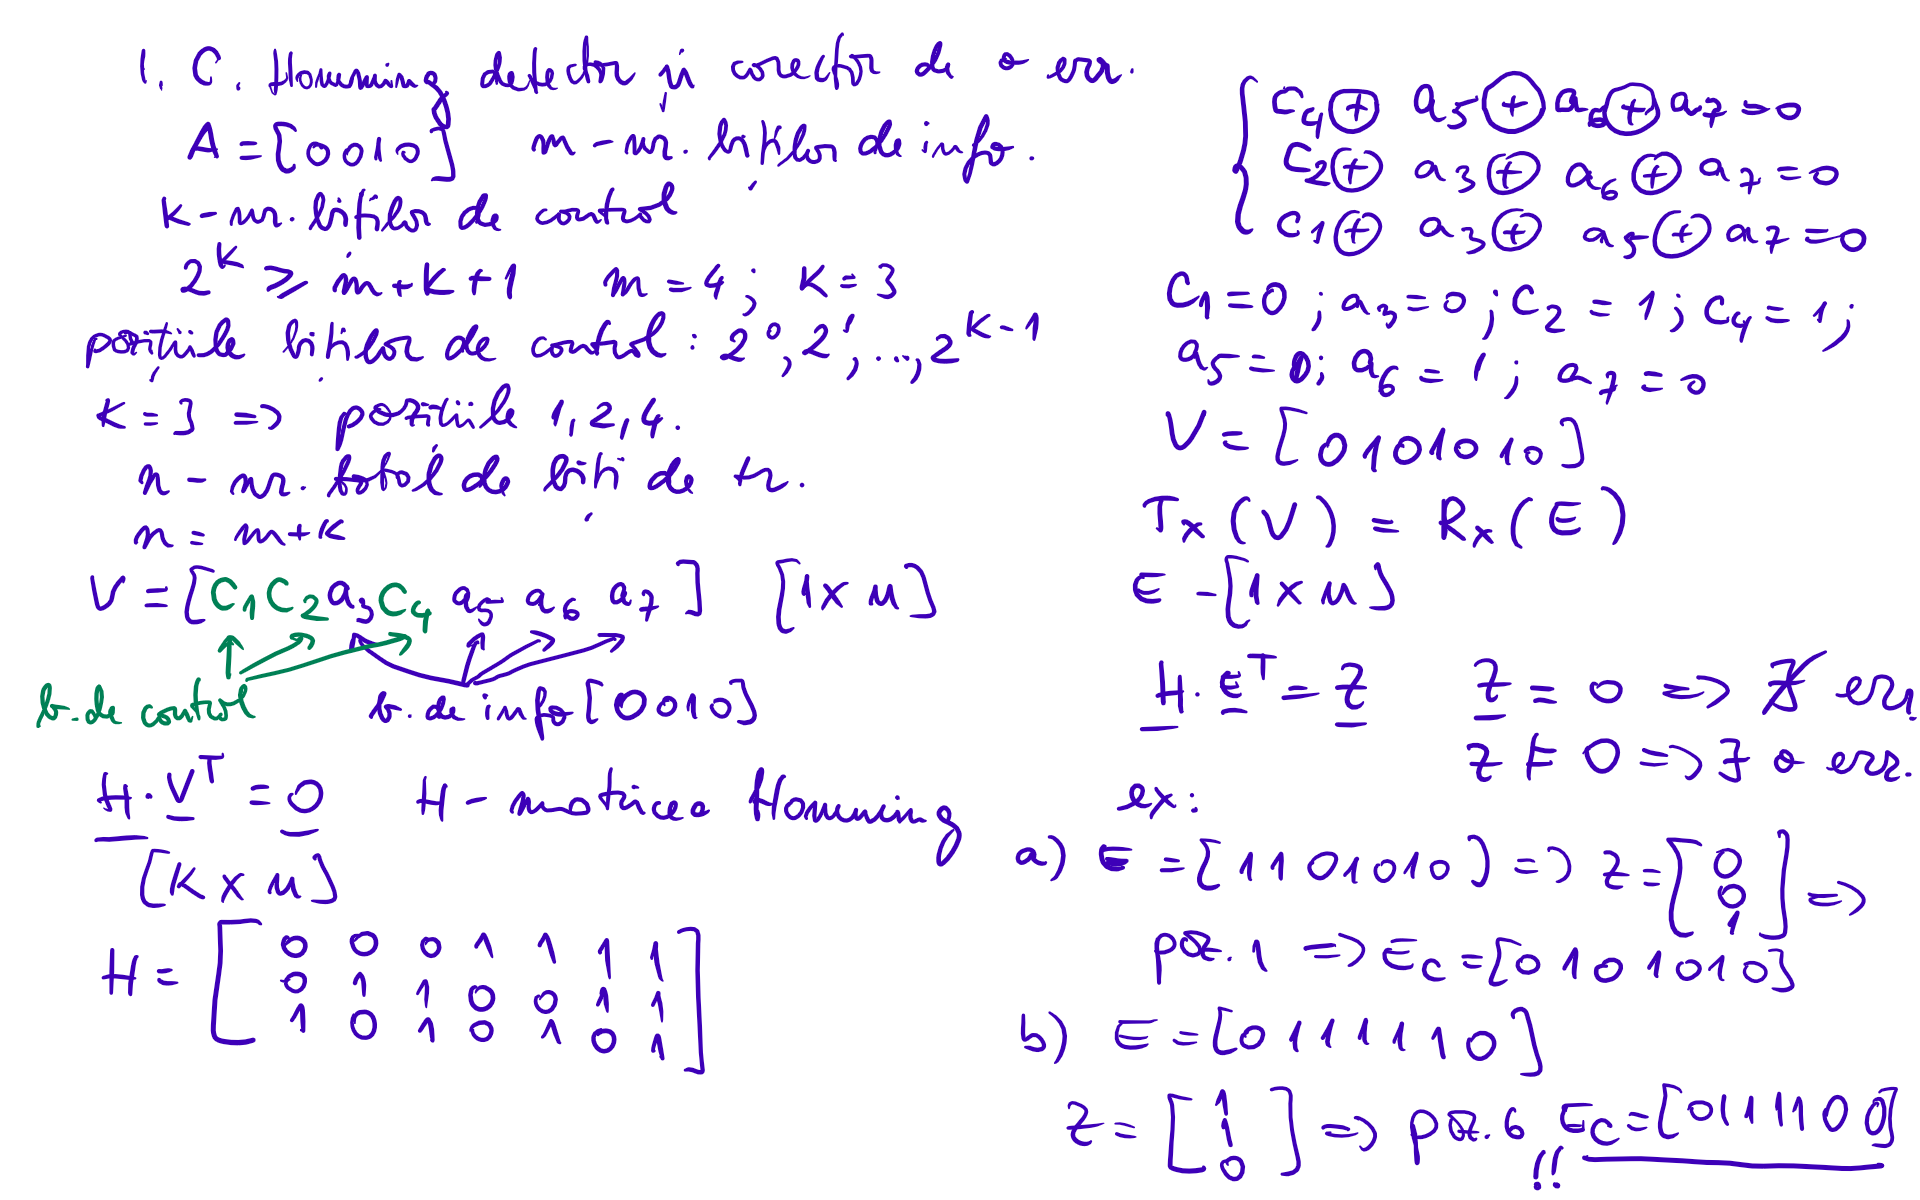 1. C. Hamming detector și corector de o err.
A = [0010]   m - nr. biților de info.
k - nr. biților de control
2^K ⩾ m+k+1   m = 4; K = 3
pozițiile biților de control: 2^0, 2^1, ..., 2^(K-1)
K = 3 => pozițiile 1, 2, 4.
n - nr. total de biți de tr.
n = m+k
V = [C1 C2 a3 C4 a5 a6 a7]   [1 x n]
b. de control   b. de info [0010]
H · V^T = 0   H - matricea Hamming
[K x n]
H = [ 0 0 0 1 1 1 1
0 1 1 0 0 1 1
1 0 1 0 1 0 1 ]
{ C4 ⊕ a5 ⊕ a6 ⊕ a7 = 0
C2 ⊕ a3 ⊕ a6 ⊕ a7 = 0
C1 ⊕ a3 ⊕ a5 ⊕ a7 = 0
C1 = 0; a3 = 0; C2 = 1; C4 = 1;
a5 = 0; a6 = 1; a7 = 0
V = [0101010]
Tx (V) = Rx (E)
E - [1 x n]
H · E^T = Z   Z = 0 => ∄ err.
Z ≠ 0 => ∃ o err.
ex:
a) E = [1101010] => Z = [ 0
0
1 ] =>
poz. 1 => Ec = [0101010]
b) E = [0111110]
Z = [ 1
1
0 ] => poz. 6   Ec = [0111100]
!!